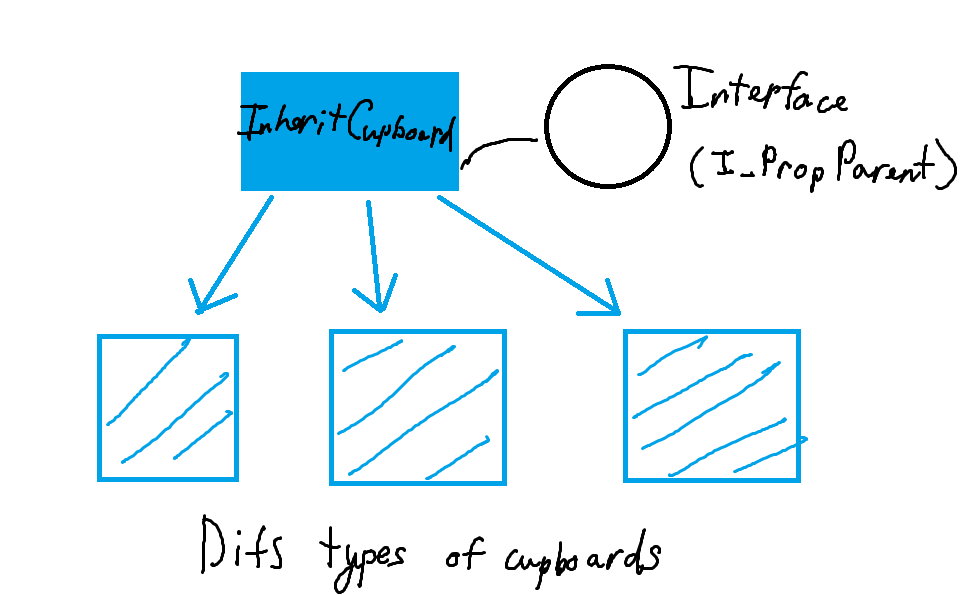 InheritCupboard
Interface
(I_PropParent)
Difs types of cupboards